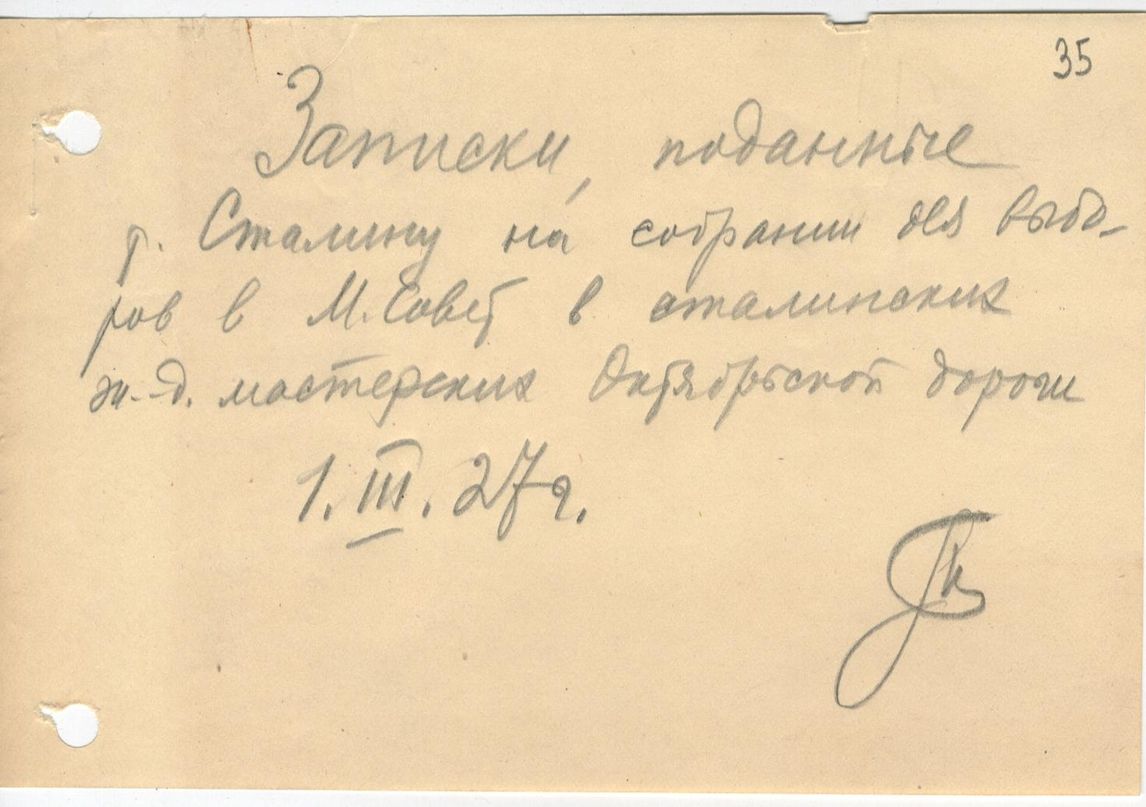 35
Записки, поданные
т. Сталину на собрании для выбо-
ров в М. Совет в сталинских
ж.-д. мастерских Октябрьской дороги
1.III.27 г.